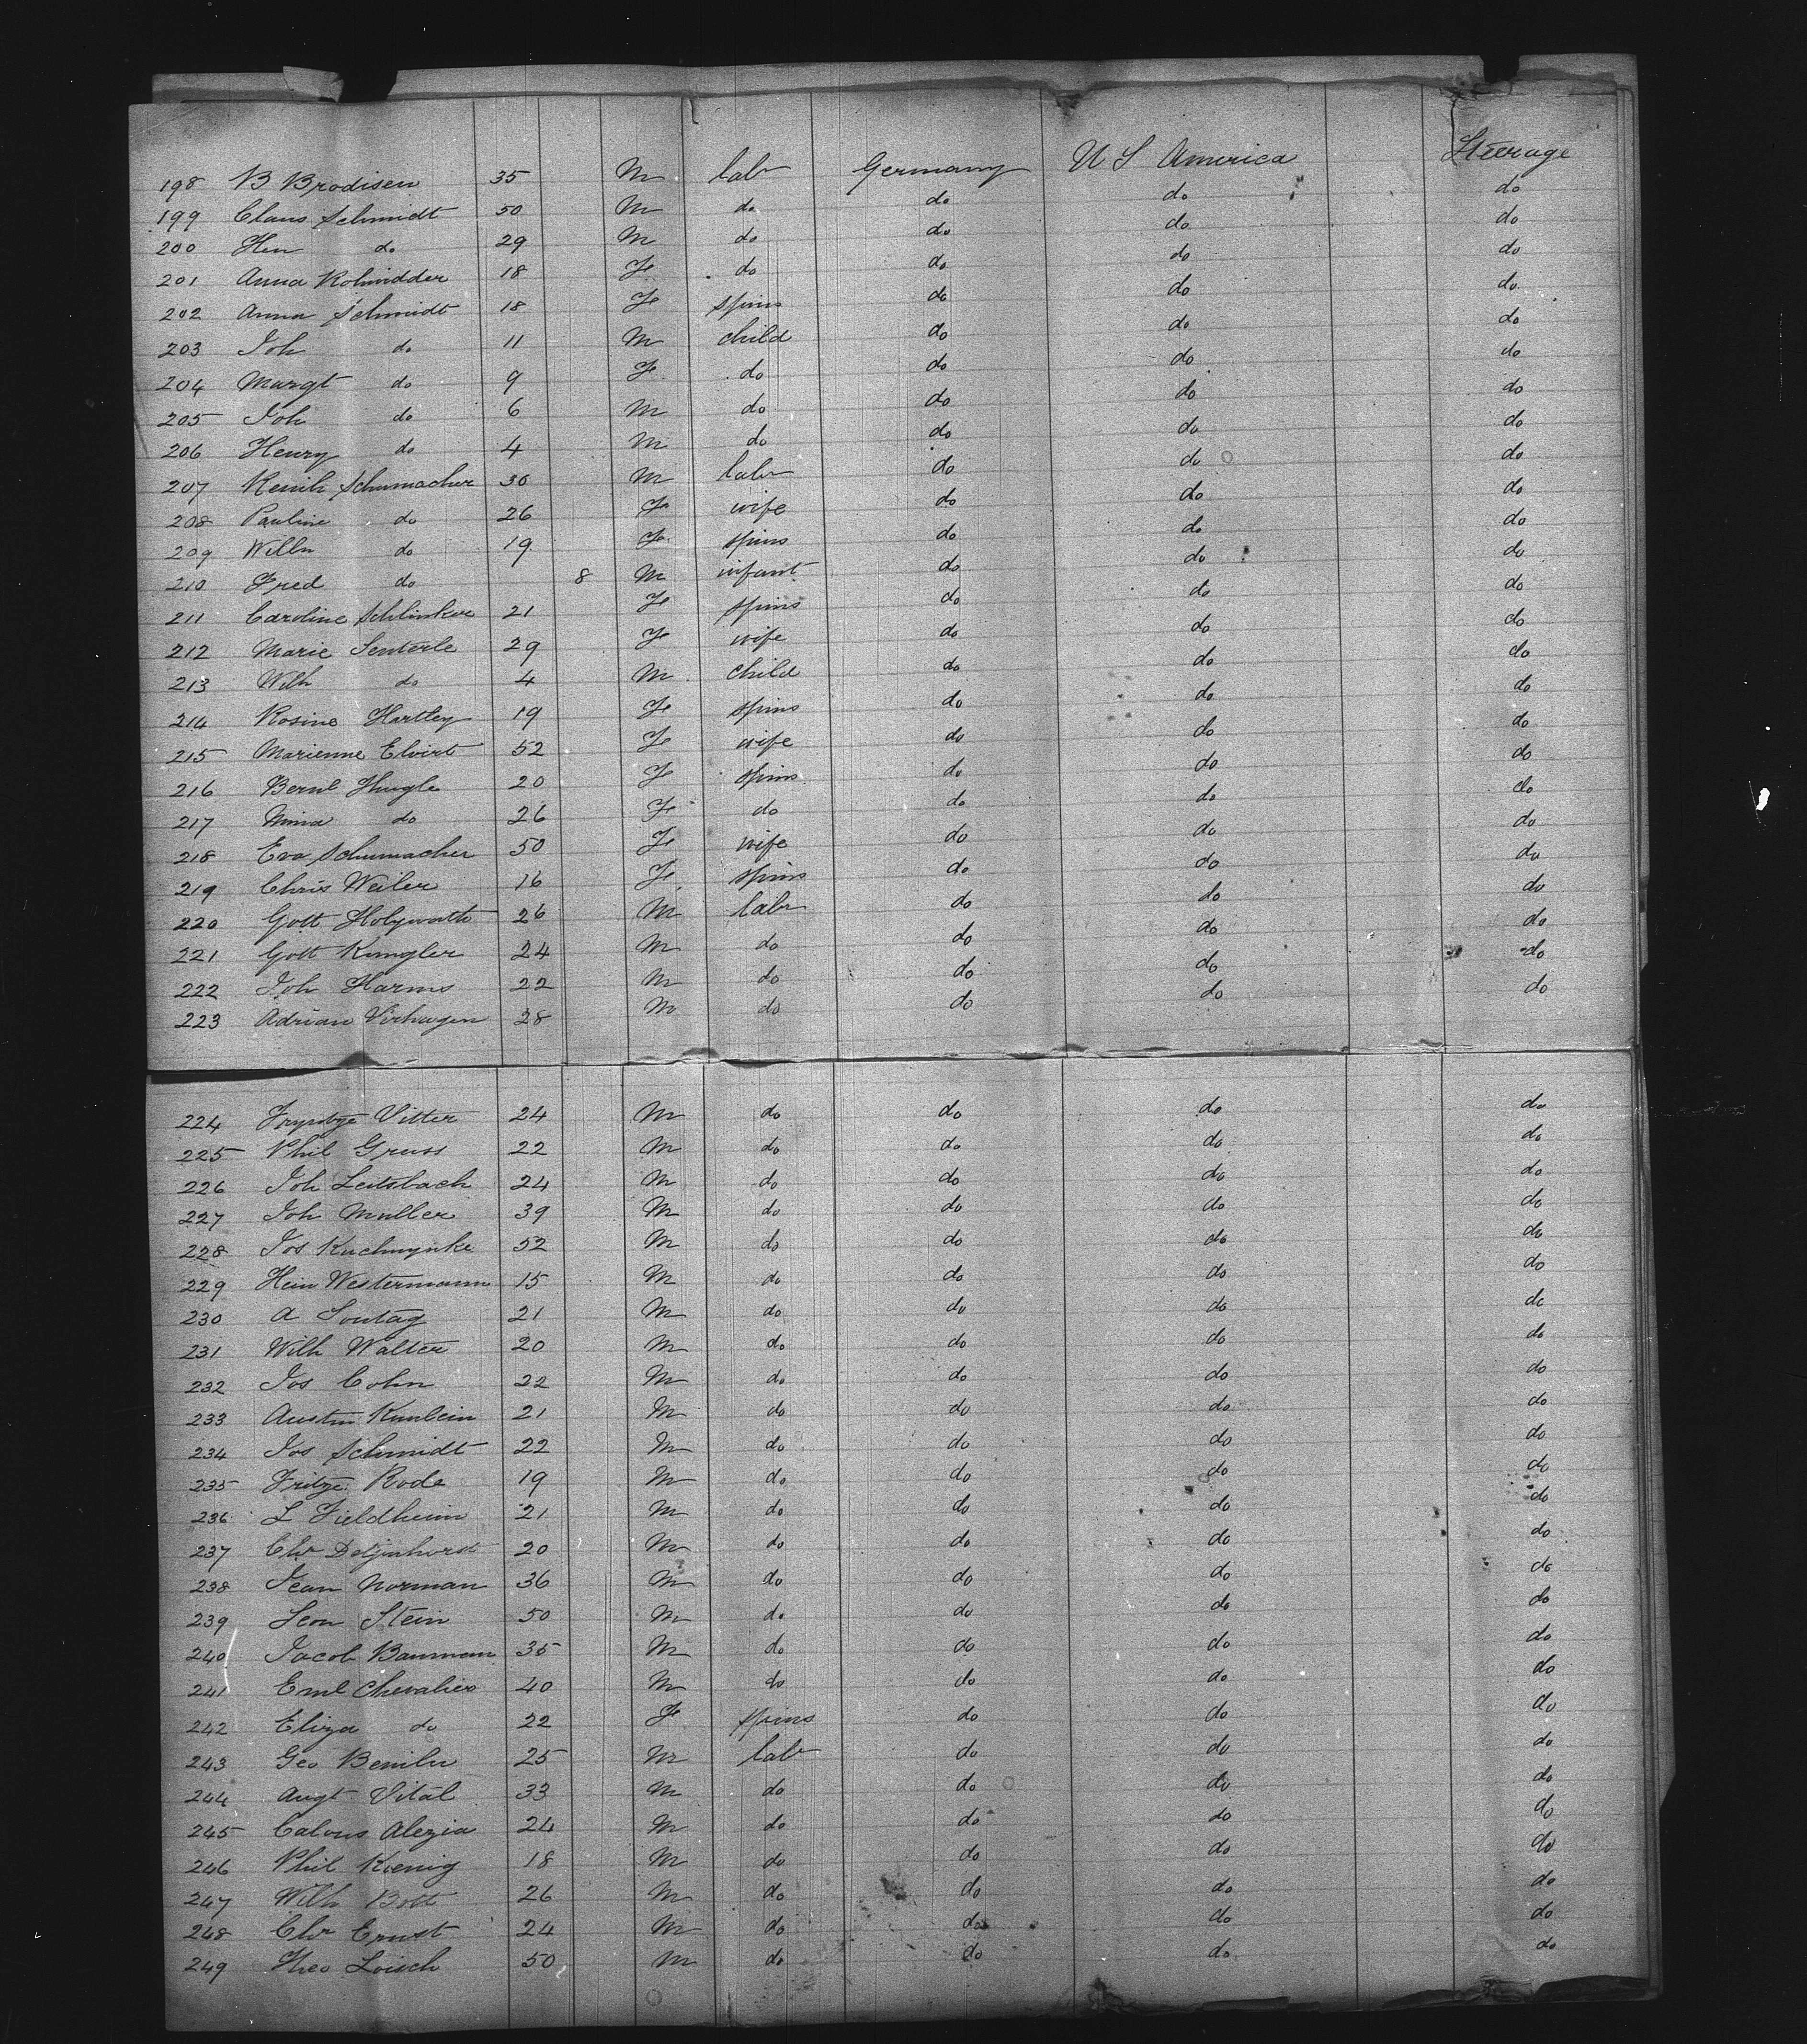 198 B Brodisen 35 M lab Germany U S America Steerage
199 Claus Schmidt 50 M do do do do
200 Hen do 29 M do do do do
201 Anna 18 Fe do do do do
202 Anna Schmidt 18 Fe spins do do do
203 Joh do 11 M child do do do
204 Margt do 9 Fe do do do do
205 Joh do 6 M do do do do
206 Henry do 4 M do do do do
207 Schumacher 30 M lab do do do
208 Pauline do 26 Fe wife do do do
209 Wilhn do 19 Fe spins do do do
210 Fred do 8 M infant do do do
211 Caroline Schlinker 21 Fe spins do do do
212 Marie Senterle 29 Fe wife do do do
213 Wilh do 4 M child do do do
214 Rosine Hartley 19 Fe spins do do do
215 Marienne Elvirt 52 Fe wife do do do
216 Bernl Hugle 20 Fe spins do do do
217 Mina do 26 Fe do do do do
218 Eva Schumacher 50 Fe wife do do do
219 Chris Weiler 16 Fe spins do do do
220 Gott Holzwarth 26 M lab do do do
221 Gott Kungler 24 M do do do do
222 Joh Harms 22 M do do do do
223 Adrian Virhagen 28 M do do do do
224 Vitter 24 M do do do do
225 Phil Gruss 22 M do do do do
226 Joh Leitsbach 24 M do do do do
227 Joh Muller 39 M do do do do
228 Jos 52 M do do do do
229 Hein Westermann 15 M do do do do
230 A Sontag 21 M do do do do
231 Wilh Walter 20 M do do do do
232 Jos Cohn 22 M do do do do
233 Austin Kunlein 21 M do do do do
234 Jos Schmidt 22 M do do do do
235 Fritze Rode 19 M do do do do
236 L Fieldheim 21 M do do do do
237 Chr 20 M do do do do
238 Jean Norman 36 M do do do do
239 Leon Stein 50 M do do do do
240 Jacob Bauman 35 M do do do do
241 Eml Chevalier 40 M do do do do
242 Eliza do 22 Fe spins do do do
243 Geo 25 M lab do do do
244 Augt Vital 33 M do do do do
245 Calous Alezia 24 M do do do do
246 Phil Koenig 18 M do do do do
247 Wilh Bott 26 M do do do do
248 Chr Ernst 24 M do do do do
249 Theo Loisch 50 M do do do do